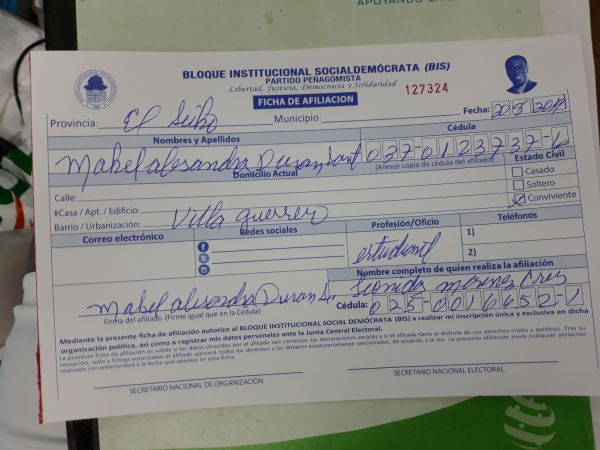 APOYANDO
BLOQUE INSTITUCIONAL SOCIALDEMÓCRATA (BIS)
PARTIDO PEÑAGOMISTA
Libertad, Justicia, Democracia y Solidaridad
127324
FICHA DE AFILIACION
Provincia: El Seibo Municipio: Fecha:
Nombres y Apellidos Cédula
Mabel alesandra Duran Sant 037-0123737-6
(Anexar copia de cédula del afiliado)
Domicilio Actual Estado Civil
Calle: Casado
Soltero
#Casa / Apt. / Edificio: Conviviente
Barrio / Urbanización: Villa guerrero
Correo electrónico Redes sociales Profesión/Oficio Teléfonos
estudiant 1)
2)
Nombre completo de quien realiza la afiliación
Mabel alesandra Duran S.
Firma del afiliado (Firme igual que en la Cédula) Cédula: 025-0016652-1
Mediante la presente ficha de afiliación autorizo al BLOQUE INSTITUCIONAL SOCIAL DEMÓCRATA (BIS) a realizar mi inscripción única y exclusiva en dicha
organización política, así como a registrar mis datos personales ante la Junta Central Electoral.
La presente ficha de afiliación es válida si los datos ofrecidos por el afiliado son correctos, las declaraciones veraces y si el afiliado tiene el disfrute de sus derechos civiles y políticos. Tras su
recepción, sello y firmas autorizadas el afiliado ejercerá todos los derechos y los deberes estatutariamente sancionados, de acuerdo a la ley. La presente afiliación anula cualquier afiliación
realizada con anterioridad a la fecha que aparece en esta ficha.
SECRETARIO NACIONAL DE ORGANIZACIÓN SECRETARIO NACIONAL ELECTORAL